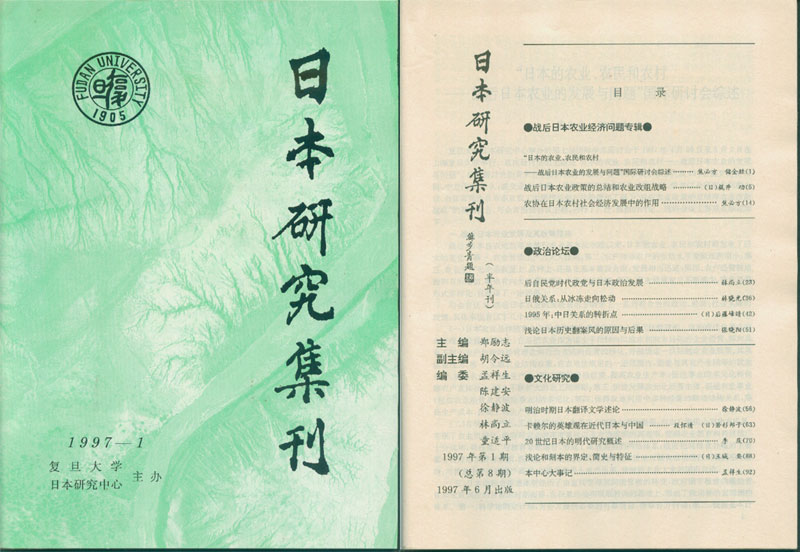 FUDAN UNIVERSITY
1905
日本研究集刊
1997—1
复旦大学
日本研究中心
主办
日本研究集刊
苏步青题
（半年刊）
主编 郑励志
副主编 胡令远
编委 孟祥生
陈建安
徐静波
林尚立
童适平
1997年第1期
（总第8期）
1997年6月出版
目 录
●战后日本农业经济问题专辑●
“日本的农业、农民和农村
——战后日本农业的发展与问题”国际研讨会综述 焦必方 (1)
战后日本农业政策的总结和农业改组战略 (5)
农协在日本农村社会经济发展中的作用 焦必方(14)
●政治论坛●
后自民党时代政党与日本政治发展 林尚立(23)
日俄关系，从冰冻走向松动 林晓光(36)
1995年：中日关系的转折点 (日)后藤峰晴(42)
浅论日本历史翻案风的原因与后果 张晓阳(51)
●文化研究●
明治时期日本翻译文学述论 徐静波(56)
卡赖尔的英雄观在近代日本与中国 段怀清 (63)
20世纪日本的明代研究概述 (70)
浅论和刻本的界定、简史与特征 (88)
本中心大事记 孟祥生(92)